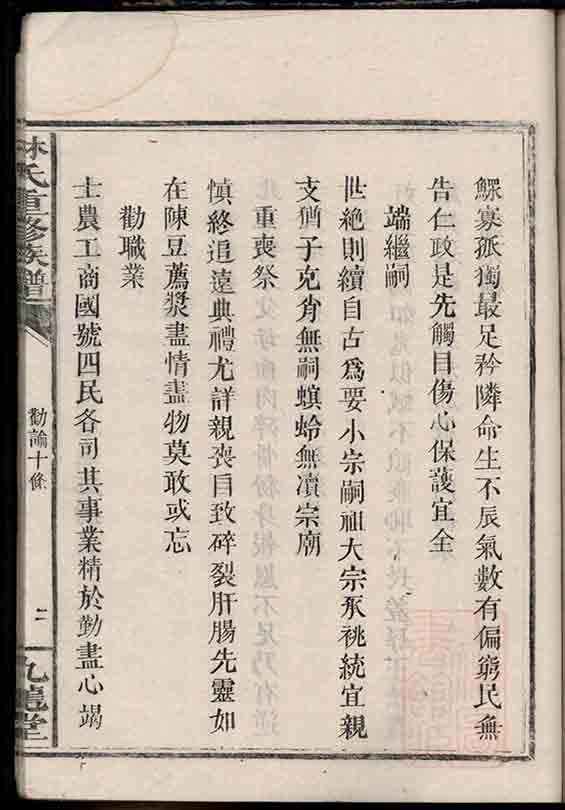 鰥寡孤獨最足矜隣命生不辰氣數有偏窮民無
告仁政是先觸目傷心保護宜全
端繼嗣
世絶則續自古爲要小宗嗣祖大宗承祧統宜親
支猶子克肖無嗣螟蛉無瀆宗廟
重喪祭
慎終追遠典禮尤詳親喪自致碎裂肝腸先靈如
在陳豆薦漿盡情盡物莫敢或忘
勸職業
士農工商國號四民各司其事業精於勤盡心竭
林氏重修族譜
勸諭十條
二
九龍堂